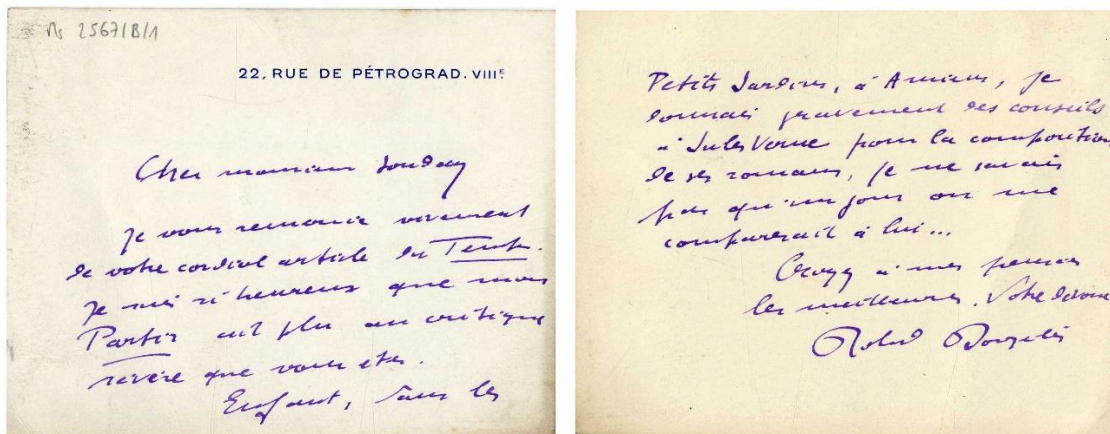 Ms 25671/B/1
22, RUE DE PÉTROGRAD. VIIIE
Cher monsieur Souday
je vous remercie vivement
de votre cordial article du Temps.
Je suis si heureux que mon
Partir ait plu au critique
sévère que vous êtes.
Enfant, dans les
Petits Jardins, à Amiens, je
donnais gravement des conseils
à Jules Verne pour la composition
de ses romans, je ne savais
pas qu'un jour on me
comparerait à lui...
Croyez à mes pensées
les meilleures. Votre dévoué
Roland Dorgelès